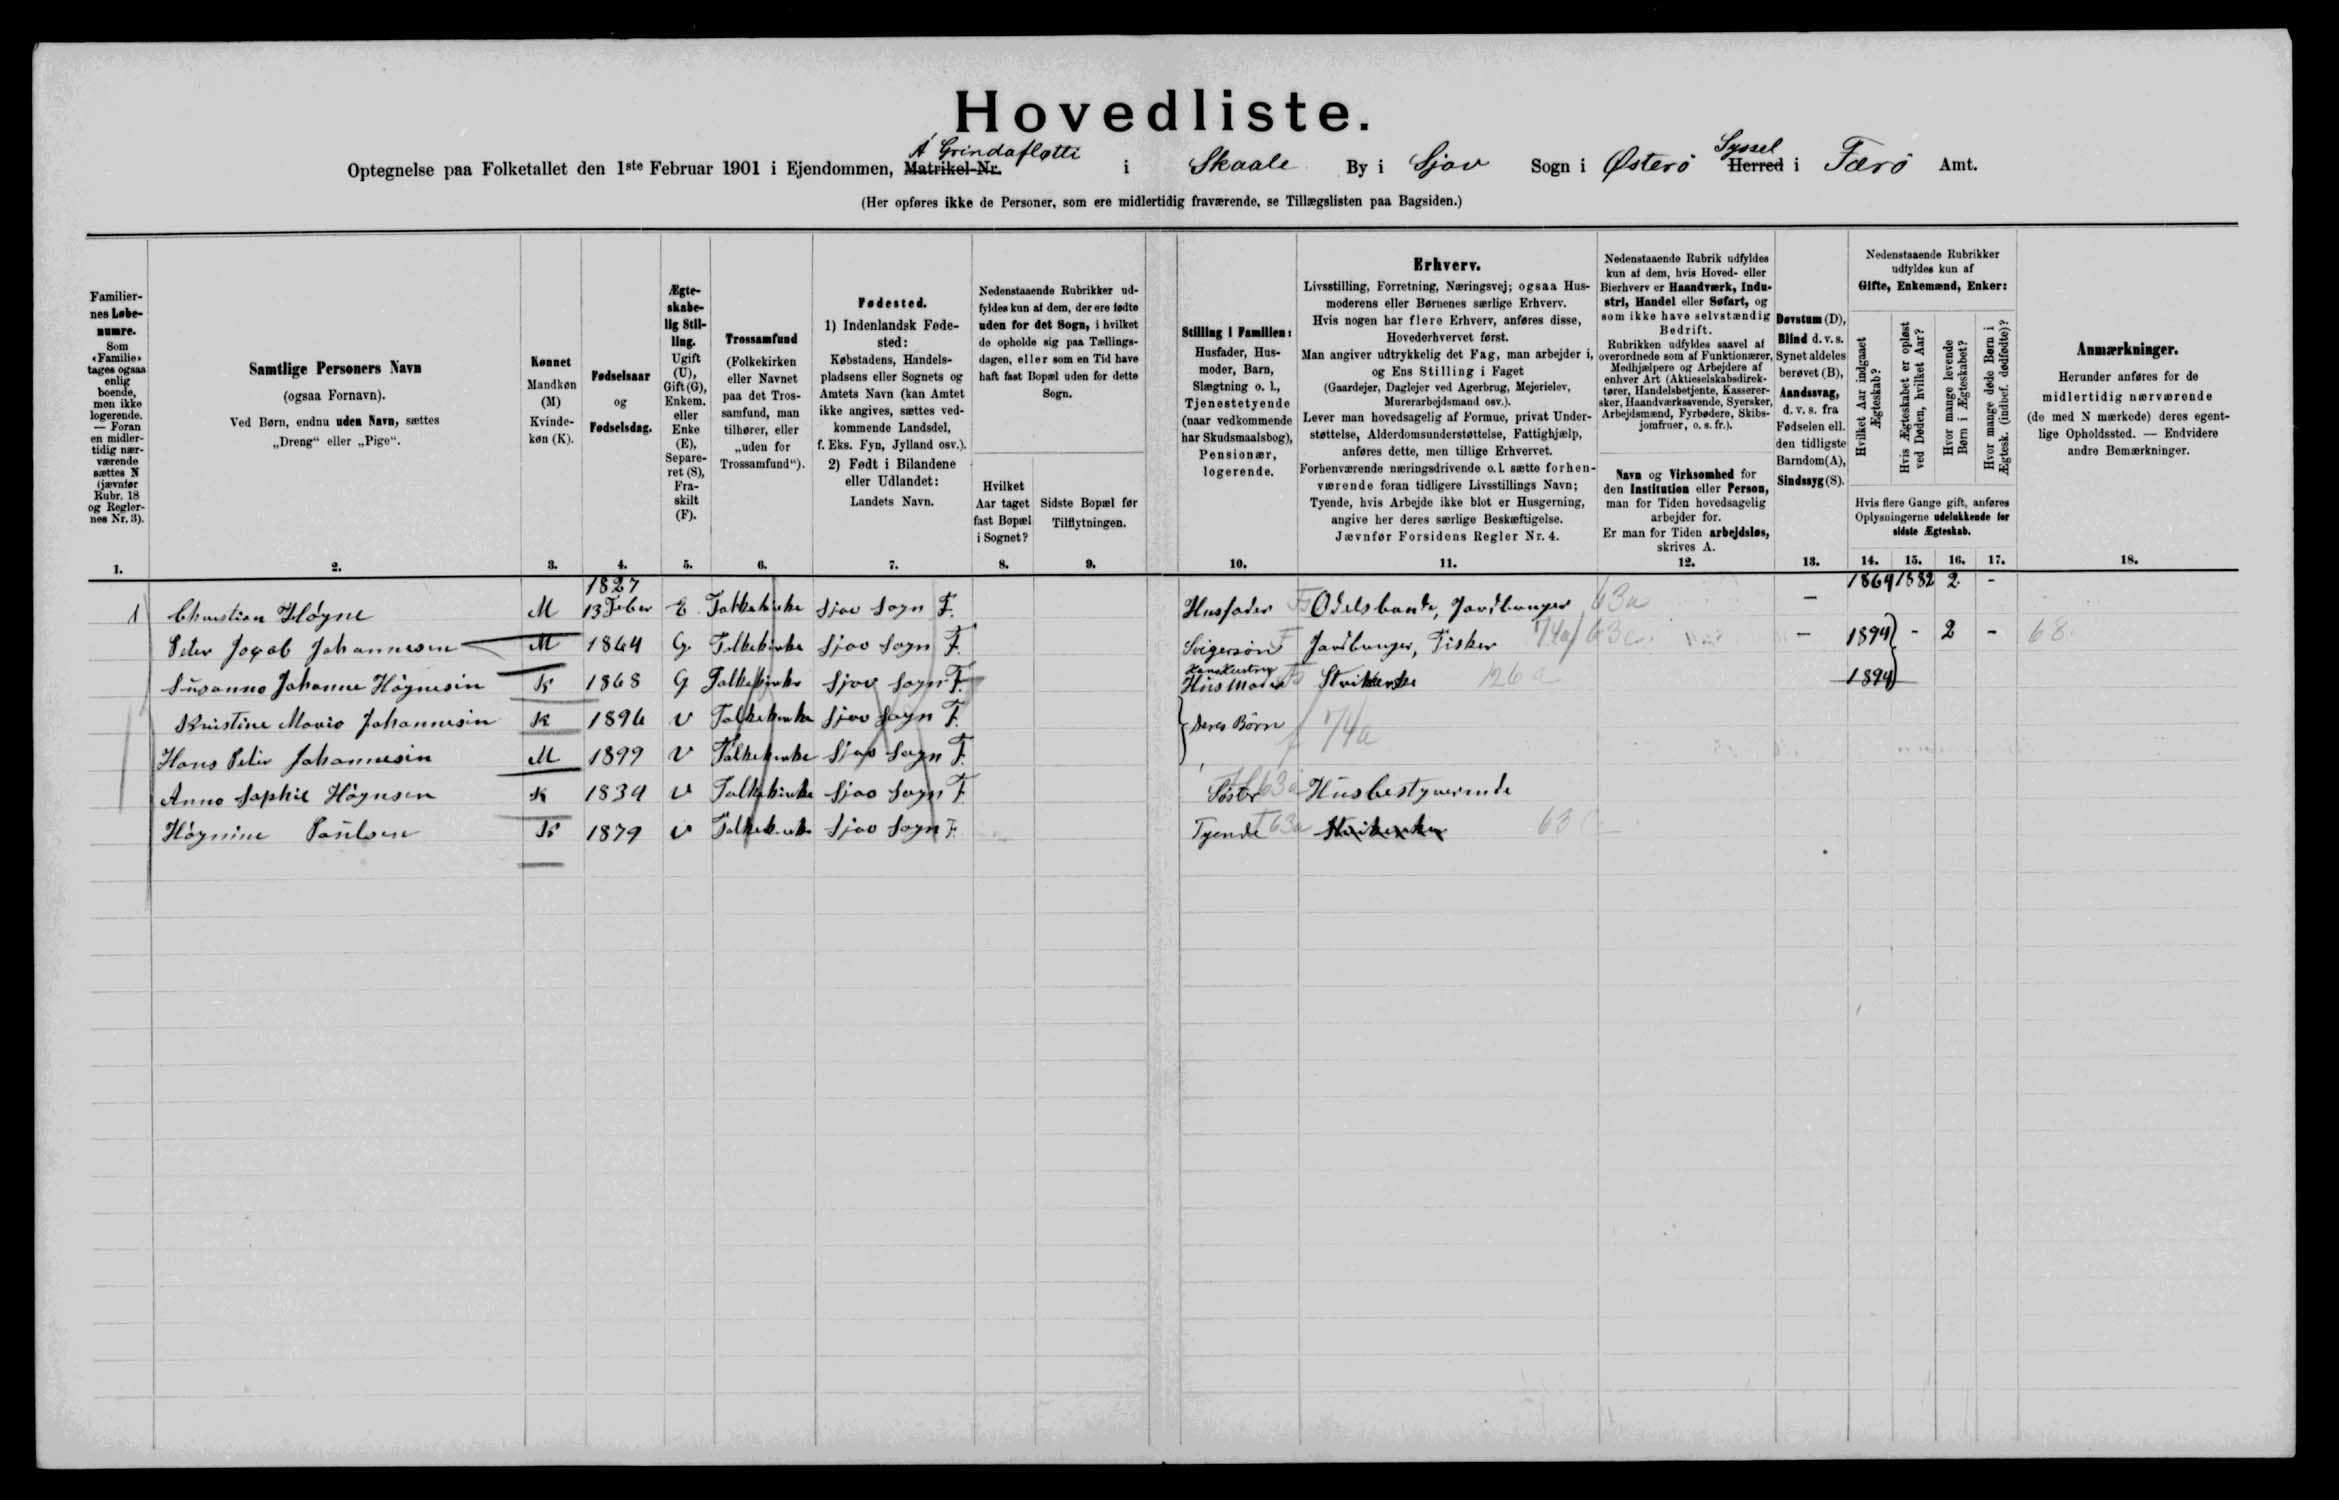 Hovedliste.
Optegnelse paa Folketallet den 1ste Februar 1901 i Ejendommen, Matrikel-Nr. Á Grindafløtti i Skaale By i Sjov Sogn i Østerö Herred Syssel i Færö Amt.
(Her opføres ikke de Personer, som ere midlertidig fraværende, se Tillægslisten paa Bagsiden.)
Familiernes Løbenumre.
Som «Familie» tages ogsaa enlig boende, men ikke logerende. — Foran en midlertidig nærværende sættes N (jævnfør Rubr. 18 og Reglernes Nr. 3).
1.
Samtlige Personers Navn
(ogsaa Fornavn).
Ved Børn, endnu uden Navn, sættes
„Dreng“ eller „Pige“.
2.
Kønnet
Mandkøn (M)
Kvindekøn (K).
3.
Fødselsaar
og
Fødselsdag.
4.
Ægteskabelig Stilling.
Ugift (U), Gift (G), Enkem. eller Enke (E), Separeret (S), Fraskilt (F).
5.
Trossamfund
(Folkekirken eller Navnet paa det Trossamfund, man tilhører, eller „uden for Trossamfund“).
6.
Fødested.
1) Indenlandsk Fødested:
Købstadens, Handelspladsens eller Sognets og Amtets Navn (kan Amtet ikke angives, sættes vedkommende Landsdel, f. Eks. Fyn, Jylland osv.).
2) Født i Bilandene eller Udlandet:
Landets Navn.
7.
Nedenstaaende Rubrikker udfyldes kun af dem, der ere fødte uden for det Sogn, i hvilket de opholde sig paa Tællingsdagen, eller som en Tid have haft fast Bopæl uden for dette Sogn.
Hvilket Aar taget fast Bopæl i Sognet?
8.
Sidste Bopæl før Tilflytningen.
9.
Stilling i Familien:
Husfader, Husmoder, Barn, Slægtning o. l., Tjenestetyende (naar vedkommende har Skudsmaalsbog), Pensionær, logerende.
10.
Erhverv.
Livsstilling, Forretning, Næringsvej; ogsaa Husmoderens eller Børnenes særlige Erhverv.
Hvis nogen har flere Erhverv, anføres disse, Hovederhvervet først.
Man angiver udtrykkelig det Fag, man arbejder i, og Ens Stilling i Faget
(Gaardejer, Daglejer ved Agerbrug, Mejerielev, Murerarbejdsmand osv.).
Lever man hovedsagelig af Formue, privat Understøttelse, Alderdomsunderstøttelse, Fattighjælp, anføres dette, men tillige Erhvervet.
Forhenværende næringsdrivende o. l. sætte forhenværende foran tidligere Livsstillings Navn;
Tyende, hvis Arbejde ikke blot er Husgerning, angive her deres særlige Beskæftigelse.
Jævnfør Forsidens Regler Nr. 4.
11.
Nedenstaaende Rubrik udfyldes kun af dem, hvis Hoved- eller Bierhverv er Haandværk, Industri, Handel eller Søfart, og som ikke have selvstændig Bedrift.
Rubrikken udfyldes saavel af overordnede som af Funktionærer, Medhjælpere og Arbejdere af enhver Art (Aktieselskabsdirektører, Handelsbetjente, Kasserersker, Haandværkssvende, Syersker, Arbejdsmænd, Fyrbødere, Skibsjomfruer, o. s. fr.).
Navn og Virksomhed for den Institution eller Person, man for Tiden hovedsagelig arbejder for.
Er man for Tiden arbejdsløs, skrives A.
12.
Døvstum (D), Blind d. v. s. Synet aldeles berøvet (B), Aandssvag, d. v. s. fra Fødselen ell. den tidligste Barndom (A), Sindssyg (S).
13.
Nedenstaaende Rubrikker udfyldes kun af
Gifte, Enkemænd, Enker:
Hvilket Aar indgaaet Ægteskab?
Hvis Ægteskabet er opløst ved Døden, hvilket Aar?
Hvor mange levende Børn i Ægteskabet?
Hvor mange døde Børn i Ægtesk. (indbef. dødfødte)?
Hvis flere Gange gift, anføres Oplysningerne udelukkende for sidste Ægteskab.
14. 15. 16. 17.
Anmærkninger.
Herunder anføres for de midlertidig nærværende (de med N mærkede) deres egentlige Opholdssted. — Endvidere andre Bemærkninger.
18.
1 Christian Høgne M 1827 13 Feber E Folkekirke Sjov Sogn F. Husfader Odelsbonde, Jordbruger 63a — 1864 1882 2 -
Peter Jacob Johannesen M 1864 G Folkekirke Sjov Sogn F. Svigersøn Jordbruger, Fisker 74a 63c — 1894 - 2 - 68
Susanna Johanne Høgnesen K 1868 G Folkekirke Sjov Sogn F. Hans Hustru Husmoder Strikkerske 26a 1894
Kristine Maria Johannesen K 1896 U Folkekirke Sjov Sogn F. Deres Børn 74a
Hans Peter Johannesen M 1899 U Folkekirke Sjov Sogn F.
Anna Sophie Høgnsen K 1834 U Folkekirke Sjov Sogn F. Søster 63a Husbestyrerinde
Høgnine Poulsen K 1879 U Folkekirke Sjov Sogn F. Tyende 63a Strikerske 63